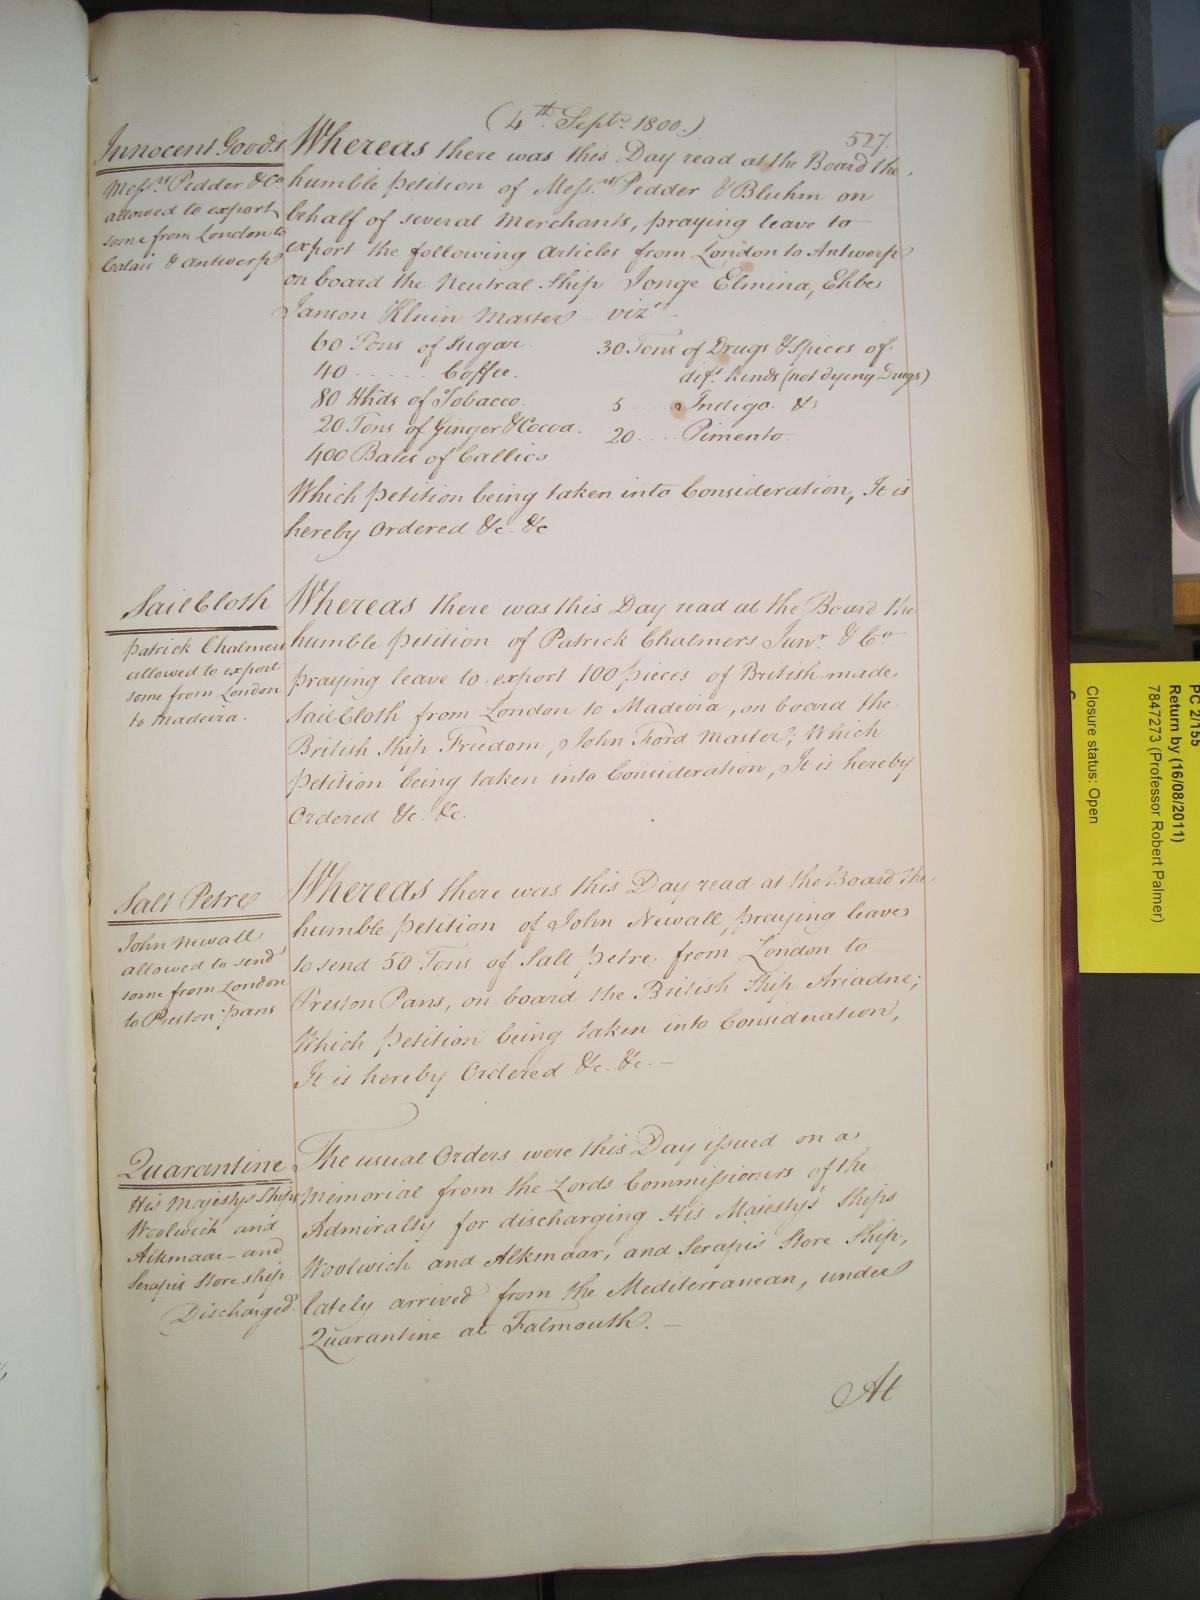 (4th. Septr. 1800.)
527.
Innocent Goods
Messrs. Pedder & Co.
allowed to export
some from London to
Calais & Antwerp
Whereas there was this Day read at the Board the
humble petition of Messrs. Pedder & Bluhm on
behalf of several Merchants, praying leave to
export the following articles from London to Antwerp
on board the Neutral Ship Jonge Elmina, Ehbe
Janson Kluin Master viz.t
60 Tons of Sugar
40 ..... Coffee.
80 Hhds of Tobacco.
20 Tons of Ginger & Cocoa.
400 Bales of Callico
30 Tons of Drugs & Spices of
dift. kinds (not dying Drugs)
5 .... Indigo. &
20 .... Pimento.
Which petition being taken into Consideration, It is
hereby Ordered &c. &c
Sail Cloth
Patrick Chalmers
allowed to export
some from London
to Madeira.
Whereas there was this Day read at the Board the
humble petition of Patrick Chalmers Junr. & Co.
praying leave to export 100 pieces of British made
Sail Cloth from London to Madeira, on board the
British Ship Freedom, John Ford Master; Which
petition being taken into Consideration, It is hereby
Ordered &c. &c.
Salt Petre
John Newall
allowed to send
some from London
to Preston-pans
Whereas there was this Day read at the Board the
humble petition of John Newall, praying leave
to send 50 Tons of Salt petre from London to
Preston Pans, on board the British Ship Ariadne;
Which petition being taken into Consideration,
It is hereby Ordered &c. &c. —
Quarantine
His Majestys Ships
Woolwich and
Alkmaar — and
Serapis Store ship
Discharged.
The usual Orders were this Day issued on a
Memorial from the Lords Commissioners of the
Admiralty for discharging His Majesty's Ships
Woolwich and Alkmaar, and Serapis Store Ship,
lately arrived from the Mediterranean, under
Quarantine at Falmouth. —
At
PC 2/155
Return by (16/08/2011)
7847273 (Professor Robert Palmer)
Closure status: Open